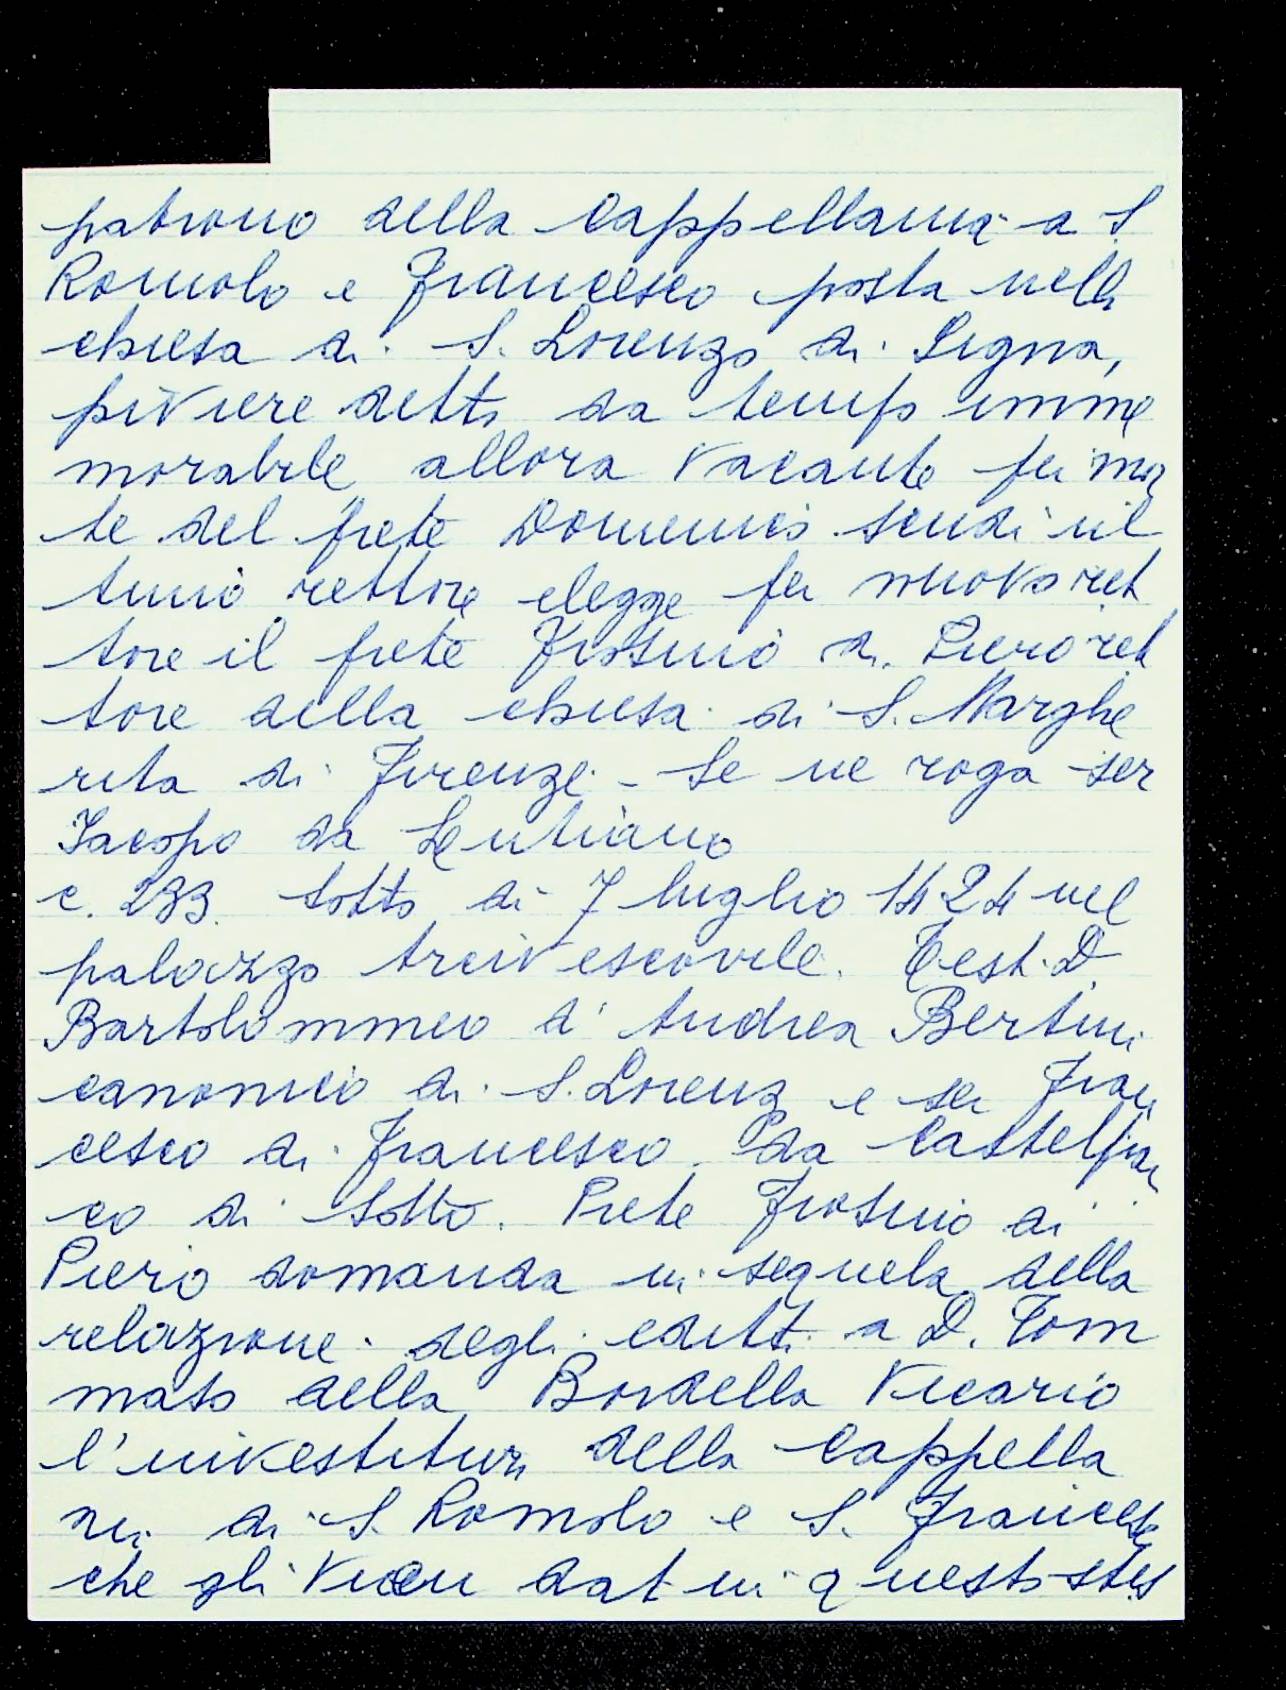 patrono della Cappellania a S.
Romolo e Francesco posta nella
chiesa di S. Lorenzo di Signa,
piviere detto da tempo imme
morabile allora vacante per mor
te del prete Domenico ul
timo rettore elegge per nuovo ret
tore il prete Frosino di Piero ret
tore della chiesa di S. Marghe
rita di Firenze - Se ne roga ser
Iacopo da
c. 233. Sotto di 7 luglio 1424 nel
palazzo arcivescovile. Test. D.
Bartolommeo d'Andrea Bertini
canonico di S. Lorenzo e ser Fran
cesco di Francesco da Castelfran
co di Sotto. Prete Frosino di
Piero domanda in sequela della
relazione degli editti a D. Tom
maso della Bordella Vicario
l'investitura della Cappella
nia di S. Romolo e S. Francesco
che gli vien data in questo stes